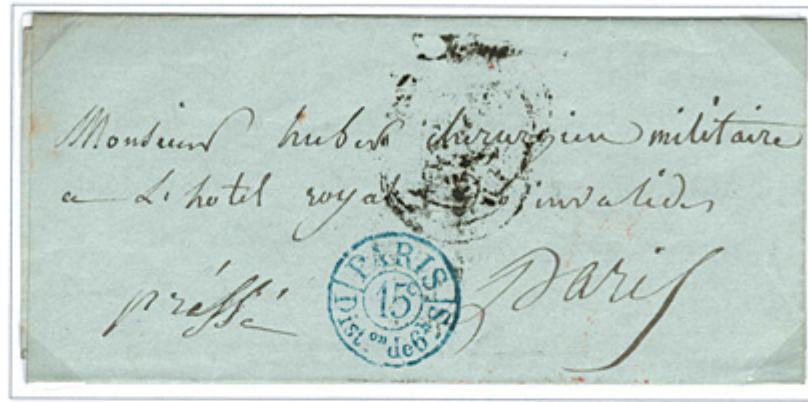 Monsieur huber chirurgien militaire
a L'hotel royal des invalides
préssé Paris
PARIS
15c
Dist.on de 6h S.